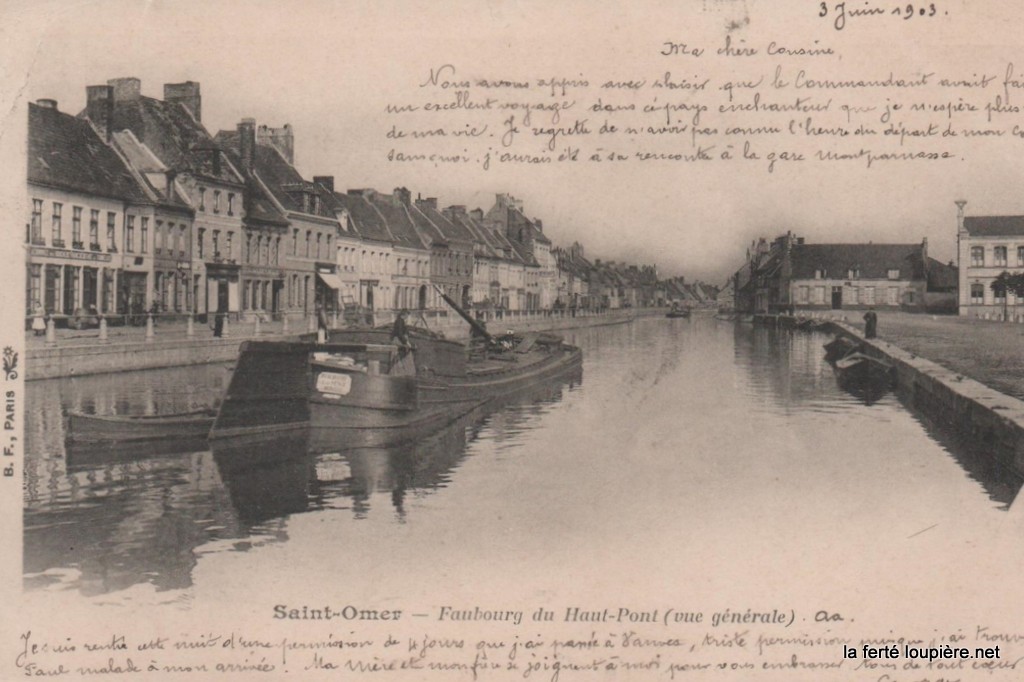 3 Juin 1903.
Ma chère Cousine,
Nous avons appris avec plaisir que le Commandant avait fai
un excellent voyage dans ce pays enchanteur que je n'espère plus
de ma vie. Je regrette de n'avoir pas connu l'heure du départ de mon Co
sans quoi, j'aurais été à sa rencontre à la gare Montparnasse.
B. F., PARIS
Saint-Omer — Faubourg du Haut-Pont (vue générale).
Je suis rentré cette nuit d'une permission de 4 jours que j'ai passé à Vannes, triste permission puisque j'ai trouv
Paul malade à mon arrivée! Ma Mère et mon frère se joignent à moi pour vous embrasser tous de tout cœur
la ferté loupière.net